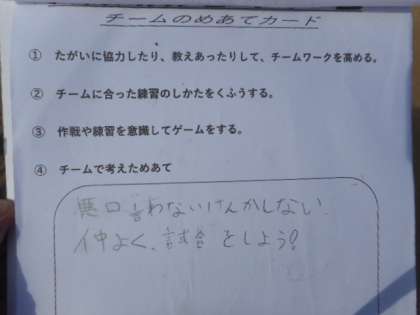 チームのめあてカード
① たがいに協力したり、教えあったりして、チームワークを高める。
② チームに合った練習のしかたをくふうする。
③ 作戦や練習を意識してゲームをする。
④ チームで考えためあて
悪口言わないけんかしない。
仲よく、試合をしよう!